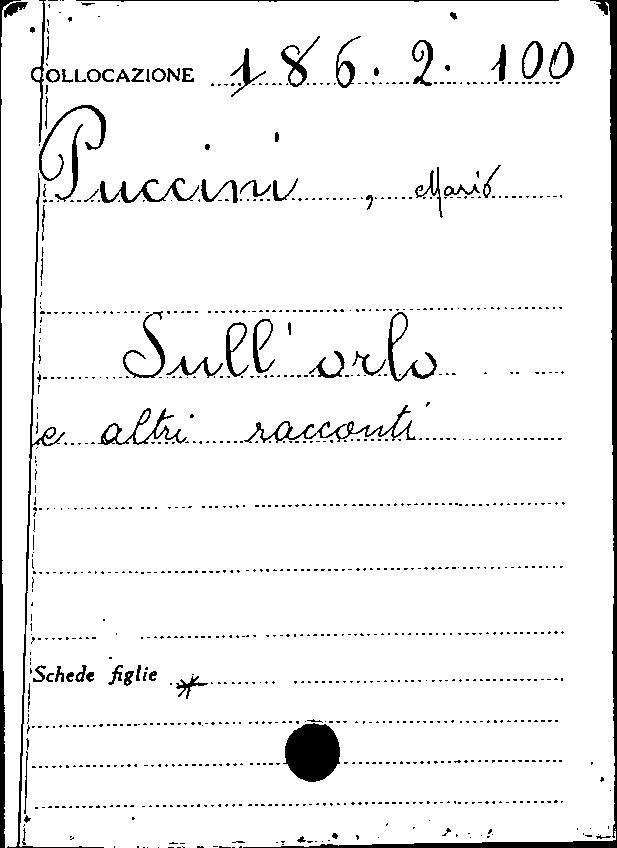 COLLOCAZIONE 186.2.100
Puccini, Mario
Sull'orlo
e altri racconti
Schede figlie *